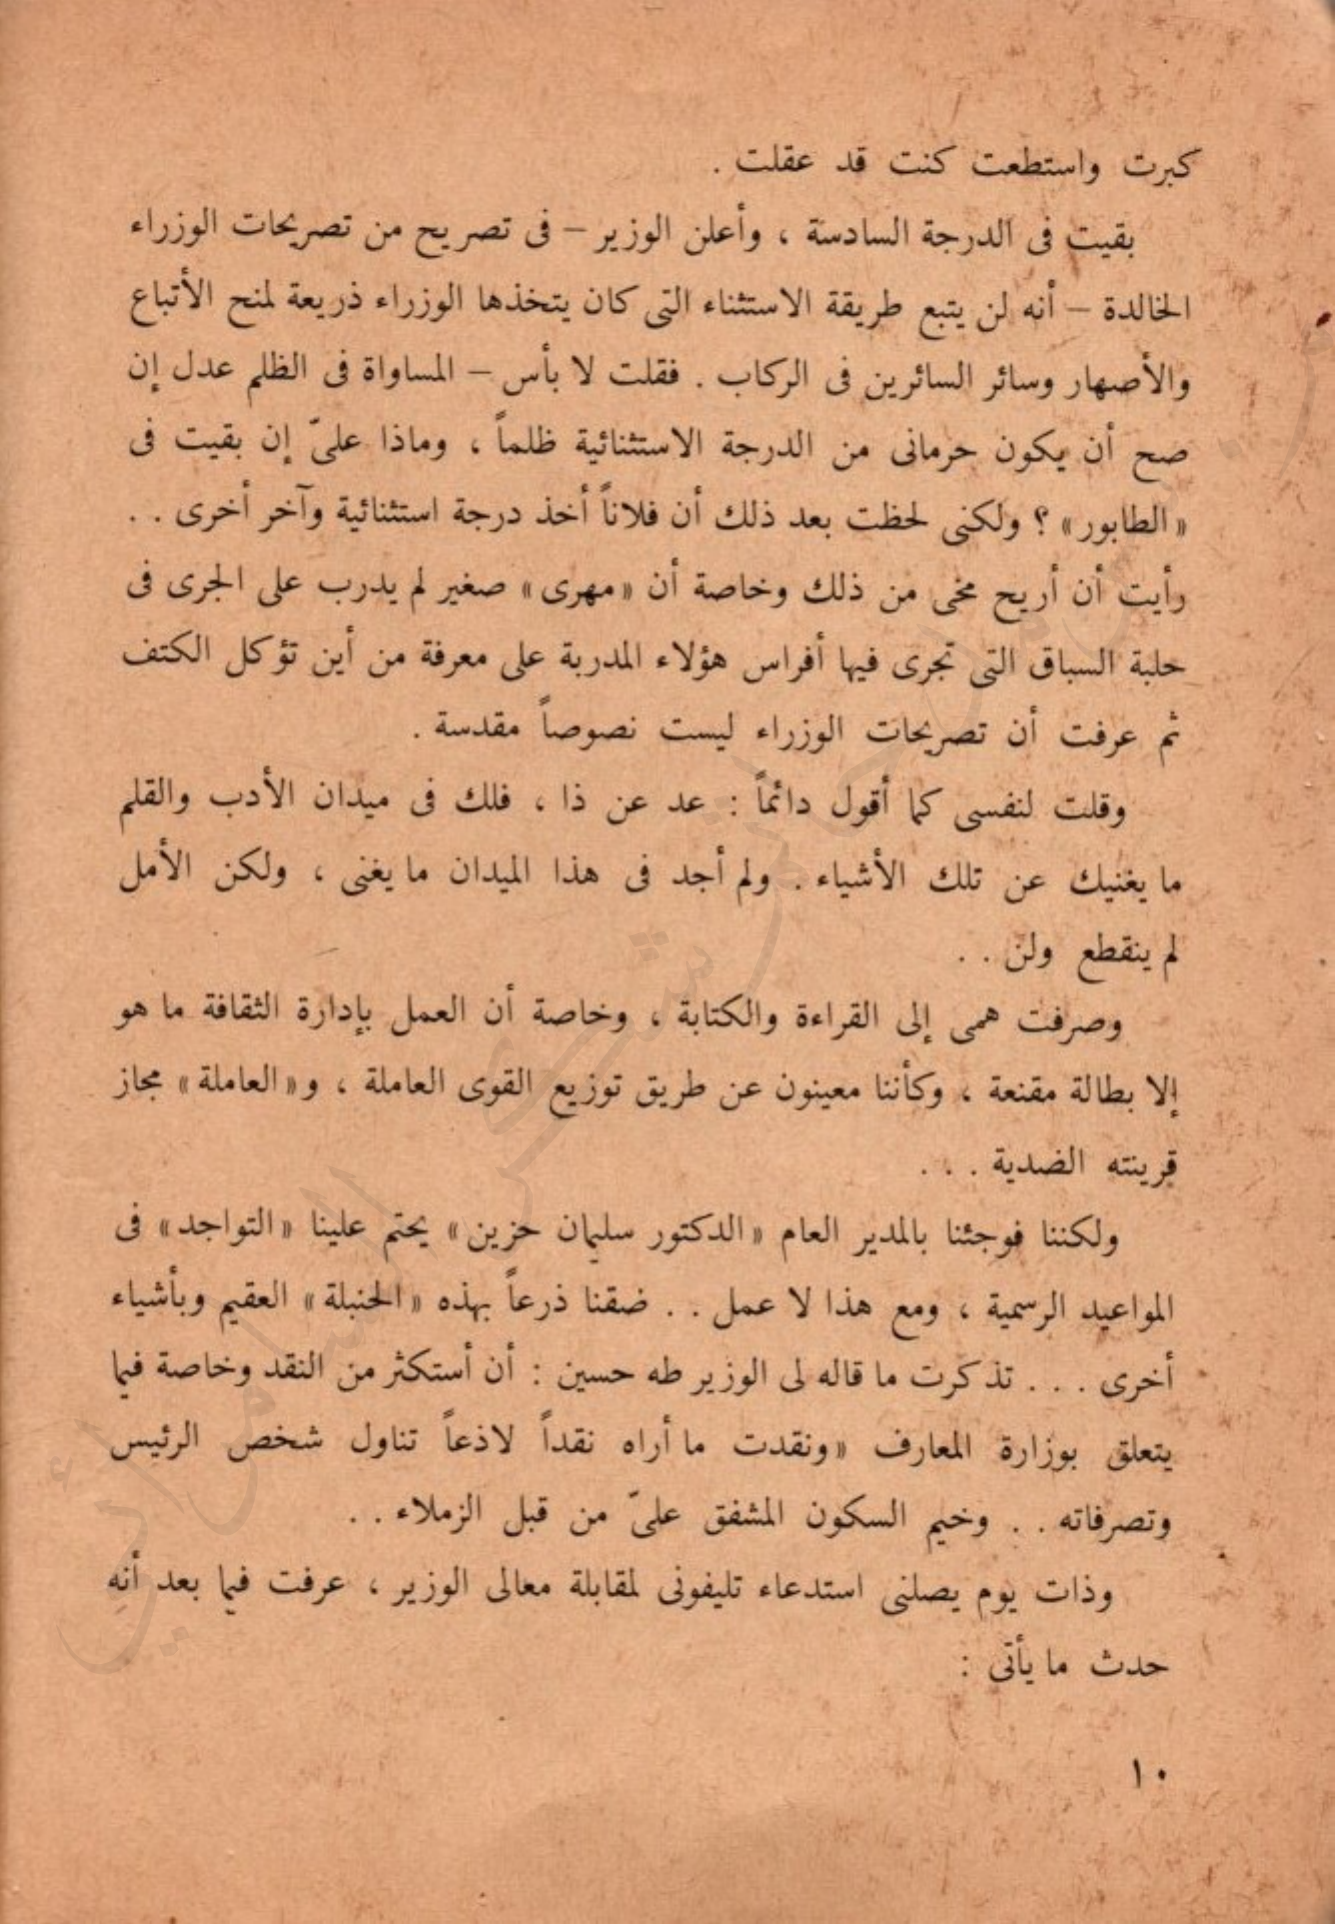 كبرت واستطعت كنت قد عقلت .
بقيت فى الدرجة السادسة ، وأعلن الوزير – فى تصريح من تصريحات الوزراء
الخالدة – أنه لن يتبع طريقة الاستثناء التى كان يتخذها الوزراء ذريعة لمنح الأتباع
والأصهار وسائر السائرين فى الركاب . فقلت لا بأس – المساواة فى الظلم عدل إن
صح أن يكون حرمانى من الدرجة الاستثنائية ظلماً ، وماذا علىّ إن بقيت فى
«الطابور» ؟ ولكنى لحظت بعد ذلك أن فلاناً أخذ درجة استثنائية وآخر أخرى . .
رأيت أن أريح مخى من ذلك وخاصة أن «مهرى» صغير لم يدرب على الجرى فى
حلبة السباق التى تجرى فيها أفراس هؤلاء المدربة على معرفة من أين تؤكل الكتف
ثم عرفت أن تصريحات الوزراء ليست نصوصاً مقدسة .
وقلت لنفسى كما أقول دائماً : عد عن ذا ، فلك فى ميدان الأدب والقلم
ما يغنيك عن تلك الأشياء . ولم أجد فى هذا الميدان ما يغنى ، ولكن الأمل
لم ينقطع ولن . .
وصرفت همى إلى القراءة والكتابة ، وخاصة أن العمل بإدارة الثقافة ما هو
إلا بطالة مقنعة ، وكأننا معينون عن طريق توزيع القوى العاملة ، و«العاملة» مجاز
قرينته الضدية . . .
ولكننا فوجئنا بالمدير العام «الدكتور سليمان حزين» يحتم علينا «التواجد» فى
المواعيد الرسمية ، ومع هذا لا عمل . . ضقنا ذرعاً بهذه «الحنبلة» العقيم وبأشياء
أخرى . . . تذكرت ما قاله لى الوزير طه حسين : أن أستكثر من النقد وخاصة فيما
يتعلق بوزارة المعارف «ونقدت ما أراه نقداً لاذعاً تناول شخص الرئيس
وتصرفاته . . وخيم السكون المشفق علىّ من قبل الزملاء . .
وذات يوم يصلنى استدعاء تليفونى لمقابلة معالى الوزير ، عرفت فيما بعد أنه
حدث ما يأتى :
١٠